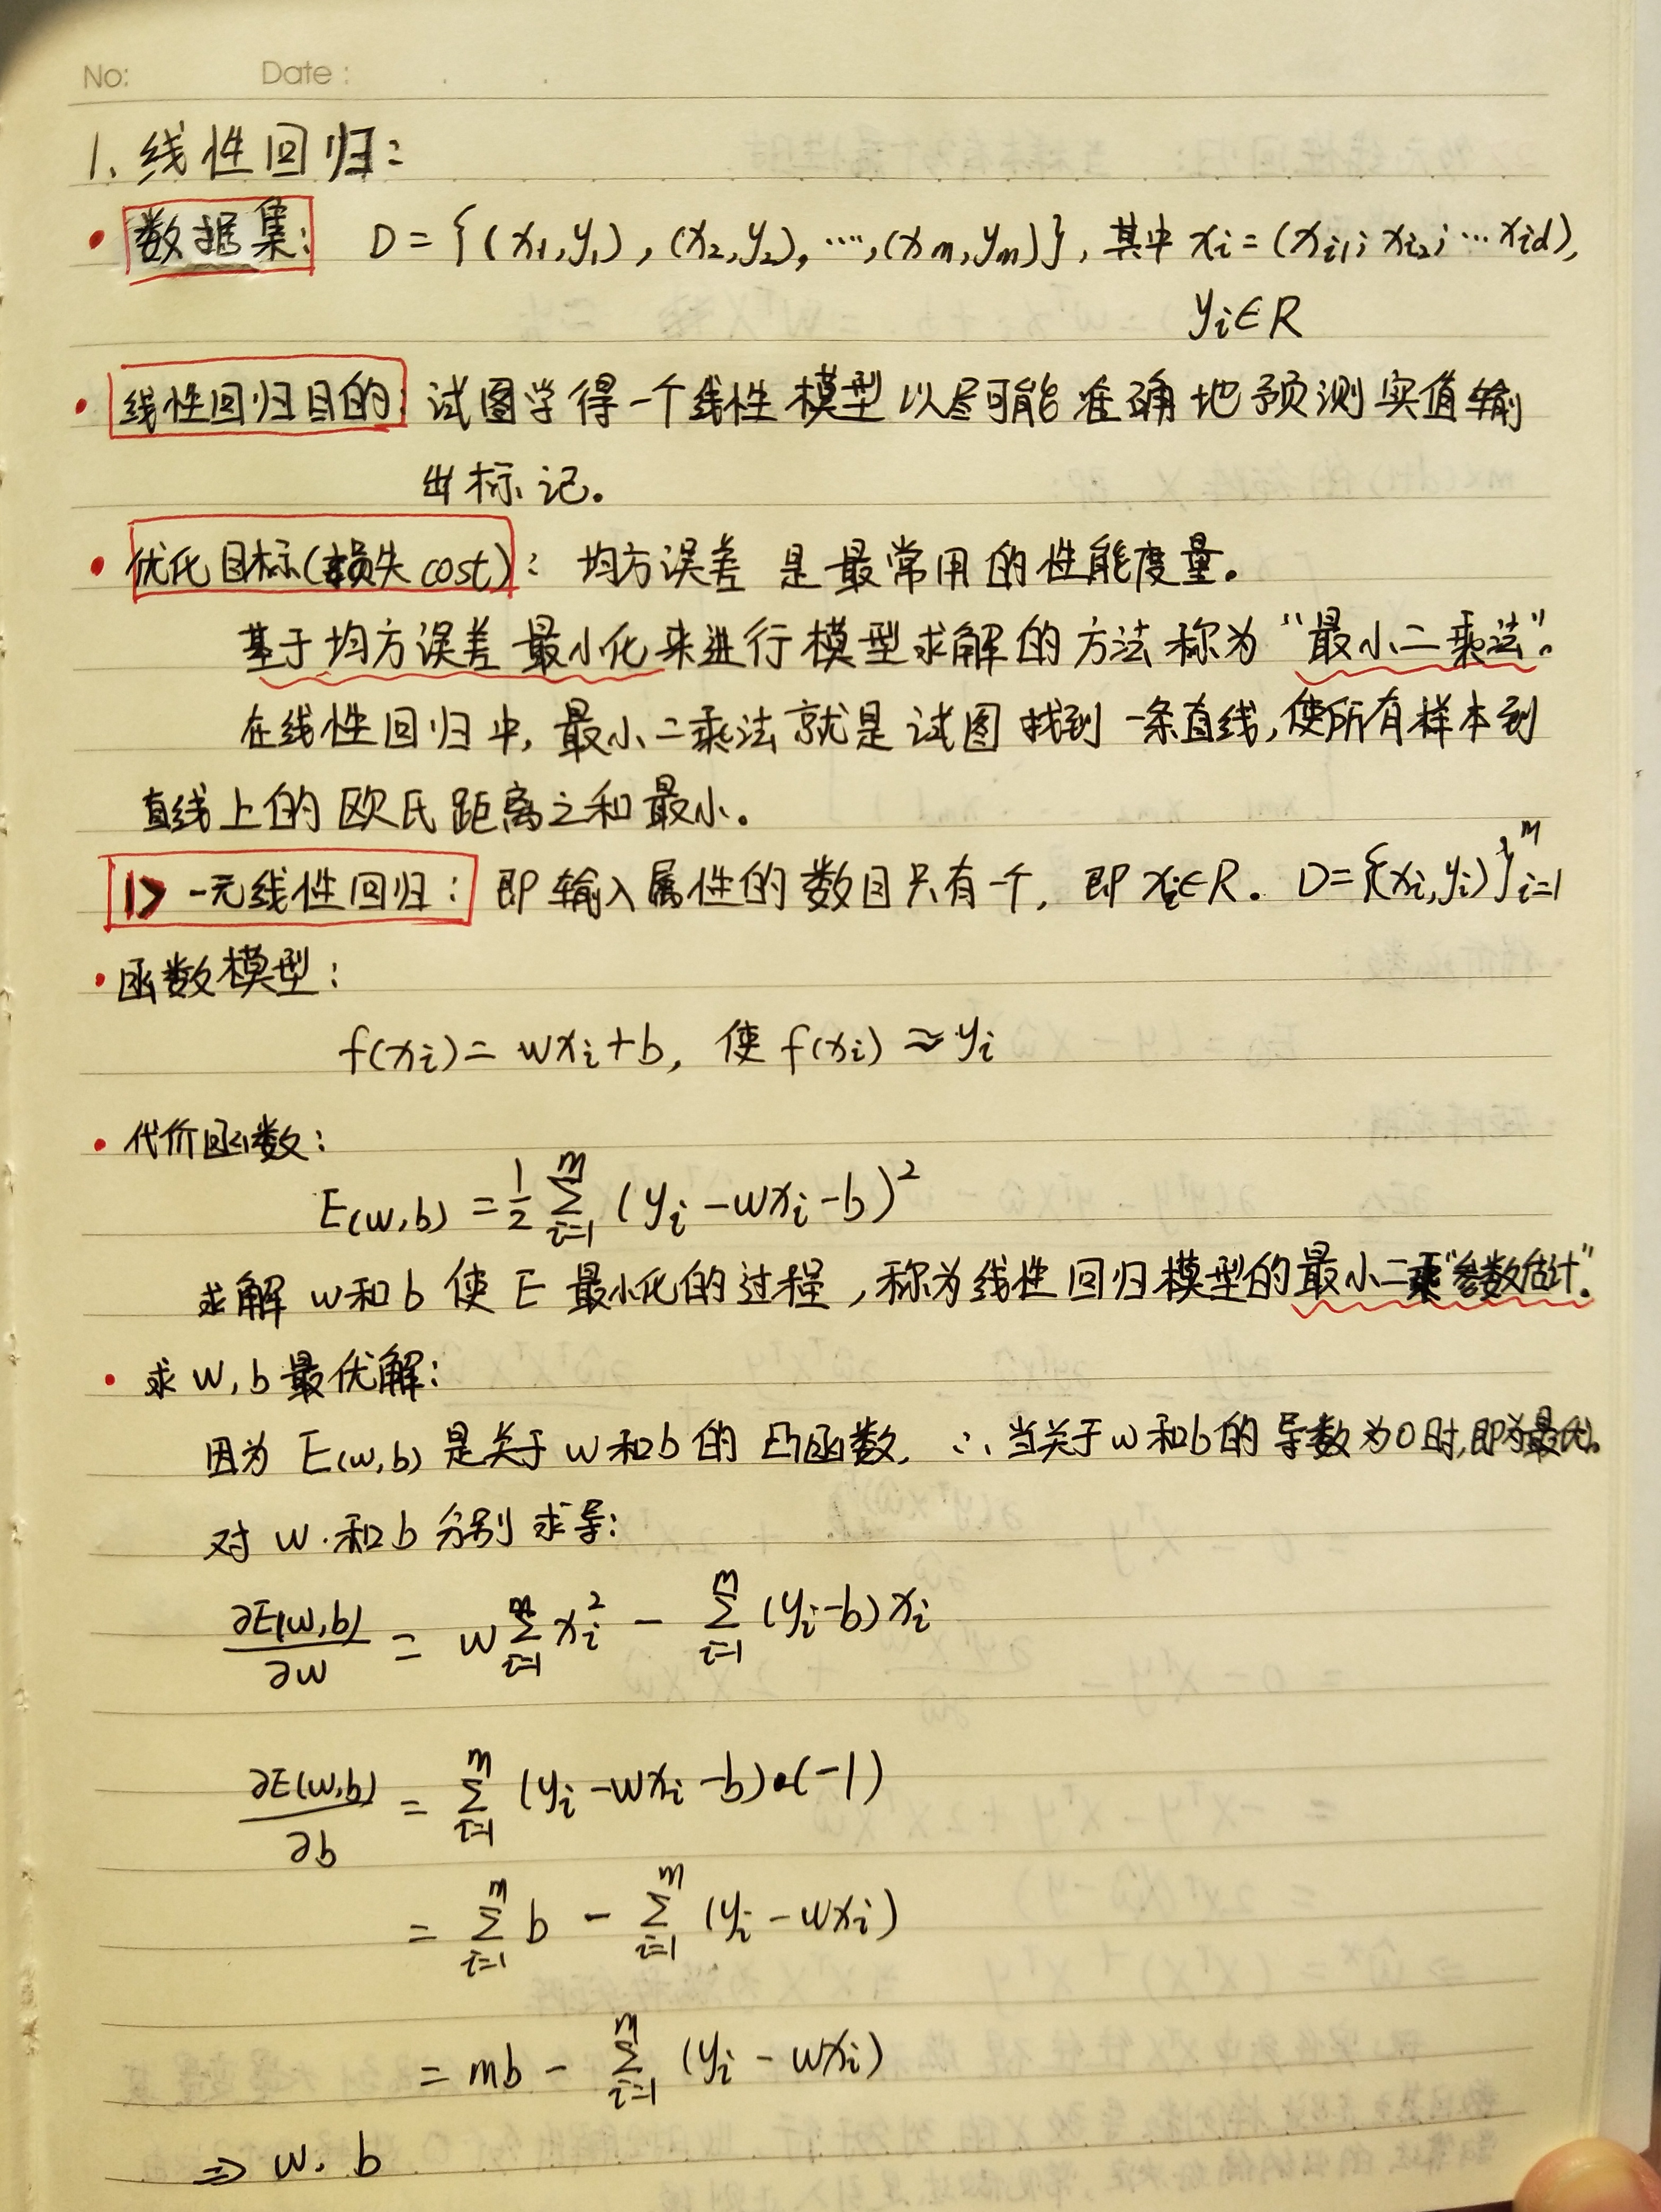 No: Date:
1. 线性回归:
• 数据集: D = {(x₁,y₁), (x₂,y₂), ..., (xm,ym)}, 其中 xi = (xi1; xi2; ... xid),
yi∈R
• 线性回归目的: 试图学得一个线性模型以尽可能准确地预测实值输
出标记。
• 优化目标(损失cost): 均方误差 是最常用的性能度量。
基于均方误差最小化来进行模型求解的方法称为“最小二乘法”。
在线性回归中, 最小二乘法就是试图找到一条直线,使所有样本到
直线上的欧氏距离之和最小。
1> 一元线性回归: 即输入属性的数目只有一个, 即 xi∈R. D={(xi,yi)}ᵐi=1
• 函数模型:
f(xi) = wxi+b, 使 f(xi) ≈ yi
• 代价函数:
E(w,b) = 1/2 Σᵐi=1 (yi - wxi - b)²
求解 w和b 使 E 最小化的过程, 称为线性回归模型的最小二乘“参数估计”.
• 求 w, b 最优解:
因为 E(w,b) 是关于 w和b的 凸函数, ∴ 当关于w和b的导数为0时,即为最优.
对 w 和 b 分别求导:
∂E(w,b)/∂w = w Σᵐi=1 xi² - Σᵐi=1 (yi-b)xi
∂E(w,b)/∂b = Σᵐi=1 (yi - wxi - b)•(-1)
= Σᵐi=1 b - Σᵐi=1 (yi - wxi)
= mb - Σᵐi=1 (yi - wxi)
⇒ w. b